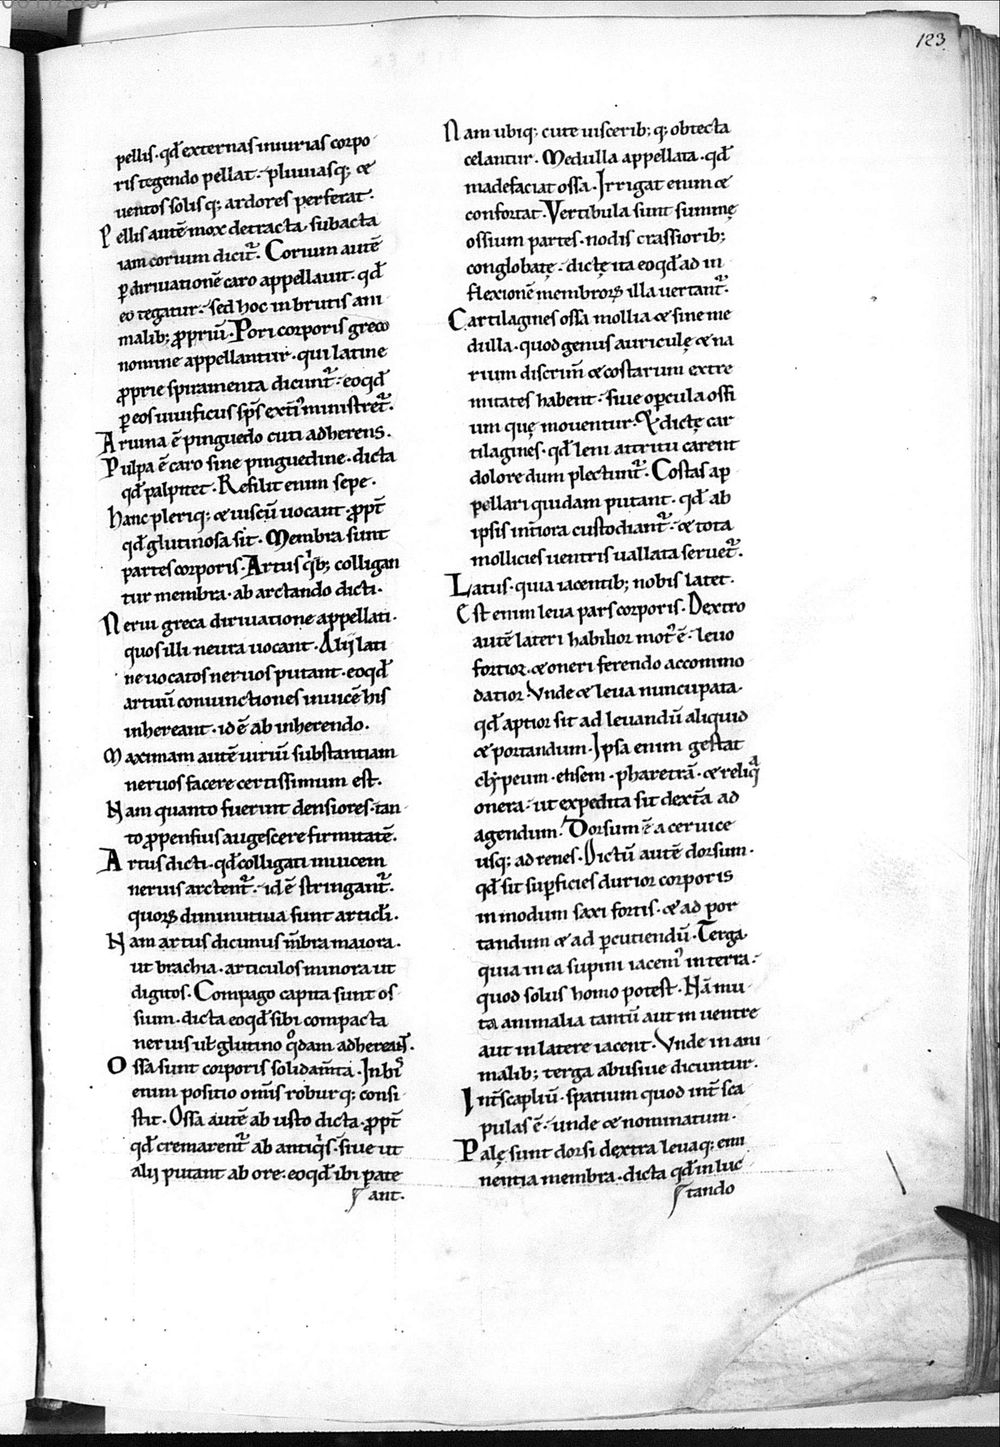 123
pellis. qđ externas iniurias corpo
ris tegendo pellat. pluuiasq; &
uentos solisq; ardores perferat.
Pellis autē mox detracta. subacta
iam corium dicit᷑. Corium autē
ꝑ diriuationē caro appellauit. qđ
eo tegatur. sed hoc in brutis ani
malib; ꝓpriū. Pori corporis greco
nomine appellantur. qui latine
ꝓprie spiramenta dicunt᷑. eoqđ
ꝑ eos uiuificus sp̄s extī ministret᷑.
Aruina ē pinguedo cuti adherens.
Pulpa ē caro sine pinguedine. dicta
qđ palpitet. Resilit enim sepe.
Hanc pleriq; & uiscū uocant. ꝓpt̄
qđ glutinosa sit. Membra sunt
partes corporis. Artus qͥb; colligan
tur membra. ab arctando dicti.
Nerui greca diriuatione appellati.
quos illi neura uocant. Alij lati
ne uocatos neruos putant. eoqđ
artuū coniunctiones inuicē his
inhereant. id ē ab inherendo.
Maximam autē uiriū substantiam
neruos facere certissimum est.
Nam quanto fuerint densiores. tan
to ꝓpensius augescere firmitatē.
Artus dicti. qđ colligati inuicem
neruis arctent᷑. id ē stringant᷑.
quoꝝ diminutiua sunt articłi.
Nam artus dicimus m̄bra maiora.
ut brachia. articulos minora ut
digitos. Compago capita sunt os
sium. dicta eoqđ sibi compacta
neruis uel̄ glutino qͦdam adhereant.
Ossa sunt corporis solidam̄ta. In hiͣ
enim positio om̄is roburq; consi
stit. Ossa autē ab usto dicta. ꝓpt̄
qđ cremarent᷑ ab antiqͥs. siue ut
alij putant ab ore. eoqđ ibi pate
ant.
Nam ubiq; cute uiscerib; q; obtecta
celantur. Medulla appellata. qđ
madefaciat ossa. Irrigat enim &
confortat. Vertibula sunt summę
ossium partes. nodis crassiorib;
conglobatę. dictę ita eoqđ ad in
flexionē membroꝝ illa uertant᷑.
Cartilagines ossa mollia & sine me
dulla. quod genus auriculę & na
rium discrim̄ & costarum extre
mitates habent. siue oꝑcula ossi
um quę mouentur. & dictę car
tilagines. qđ leni attritu carent
dolore dum plectunt᷑. Costas ap
pellari quidam putant. qđ ab
ipsis int̄iora custodiant᷑. & tota
mollicies uentris uallata seruet᷑.
Latus. quia iacentib; nobis latet.
Est enim leua pars corporis. Dextro
autē lateri habilior mot᷒ ē. leuo
fortior. & oneri ferendo accommo
datior. Vnde & leua nuncupata.
qđ aptior sit ad leuandū aliquid
& portandum. Ipsa enim gestat
clypeum. ensem. pharetrā. & reliqͣ
onera. ut expedita sit dext̄a ad
agendum. Dorsum ē a ceruice
usq; ad renes. Dictū autē dorsum.
qđ sit suꝑficies durior corporis
in modum saxi fortis. & ad por
tandum & ad ꝑcutiendū. Terga
quia in ea supini iacem᷒ in terra.
quod solus homo potest. Nā mu
ta animalia tantū aut in uentre
aut in latere iacent. Vnde in ani
malib; terga abusiue dicuntur.
Int̄scapliū. spatium quod int̄ sca
pulas ē. unde & nominatum.
Palę sunt dorsi dextra leuaq; emi
nentia membra. dicta qđ in luc
tando